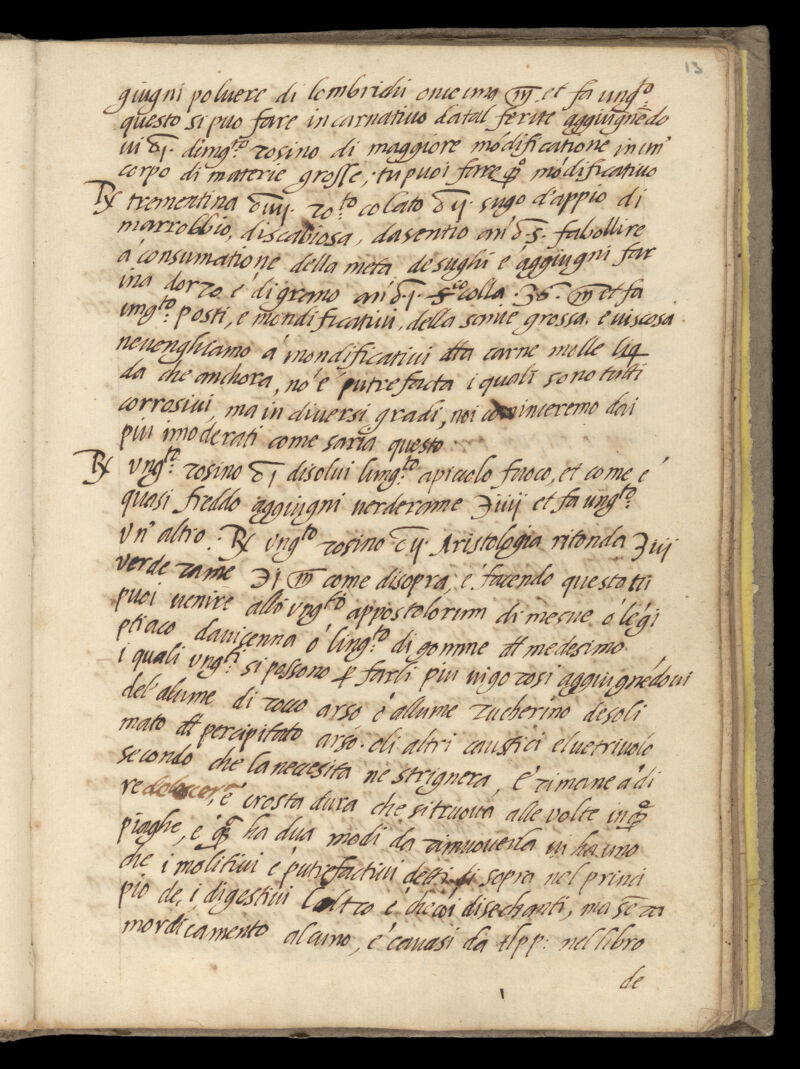 13
giugni poluere di lombrichi oncie una m. et fa ung.to
questo si puo fare incarnativo da tal ferite aggiugnēdo
ui ʒ̄j. d'ung.to rosino di maggiore mōdificatione in un'
corpo di materie grosse, tu puoi fare q̄o mōdificativo
℞ trementina ʒ̄iiij. ro.to colato ʒ̄ij. sugo d'appio di
marrobbio, di scabiosa, d'asentio an' ʒ̄.s. fa bollire
á consumatione della meta de sughi e aggiugni far
ina d'orzo, e di grano an' ʒ̄j. colla .36. m et fa
ung.to posti, e mondificativi, della sanie grossa. e viscosa
ne venghiamo á mondificativi tta carne molle liq
da che anchora, no' e' putrefacta i quali sono tutti
corrosivi, ma in diversi gradi, noi cominceremo dai
piu imoderati come saria questo
℞ ung.to rosino ʒ̄j disolvi l'ing.to a piccolo fuoco, et come e'
quasi freddo aggiugni verderame Ʒiiij et fa ung.to
Un' altro: ℞ ung.to rosino ʒ̄ij. Aristologia ritonda Ʒiij
verde rame Ʒj m come di sopra, e' facendo questo tu
puoi venire allo ung.to appostolorum di mesue ó l'egi
ptiaco d'avicenna ó l'ing.to di gomme dl medesimo
i quali ung.ti si possono p farli piu vigorosi aggiugnēdovi
del' alume di rocco arso ó alume zucherino de soli
mato dl percipitato arso. oli altri caustici el vetrivolo
secondo che la necesita ne strignera, E' rimane á di
re , e' crosta dura che si truova alle volte in q̄o
piaghe, e' q̄a ha dua modi da rimuoverla vi ha uno
che i molitivi e putrefactivi detti di sopra nel princi
pio de, i digestivi l'altro e' che coi disechanti, ma sēza
mordicamento alcuno, e' cavasi da Hpp: nel libro
de